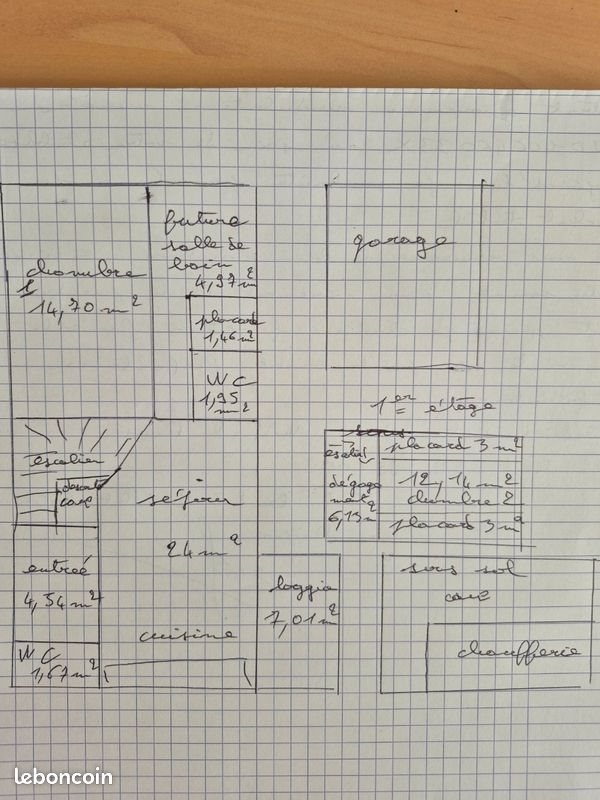 future
salle de
bain
4,97 m²
chambre
1
14,70 m²
placard
1,46 m²
WC
1,95
m²
garage
1er étage
escalier
descente
cave
séjour
24 m²
entreé
4,54 m²
WC
1,67 m²
cuisine
loggia
7,01 m²
sous
placard 3 m²
escalier
dégage
ment
6,13 m²
12,14 m²
chambre 2
placard 3 m²
sous sol
cave
chaufferie
leboncoin